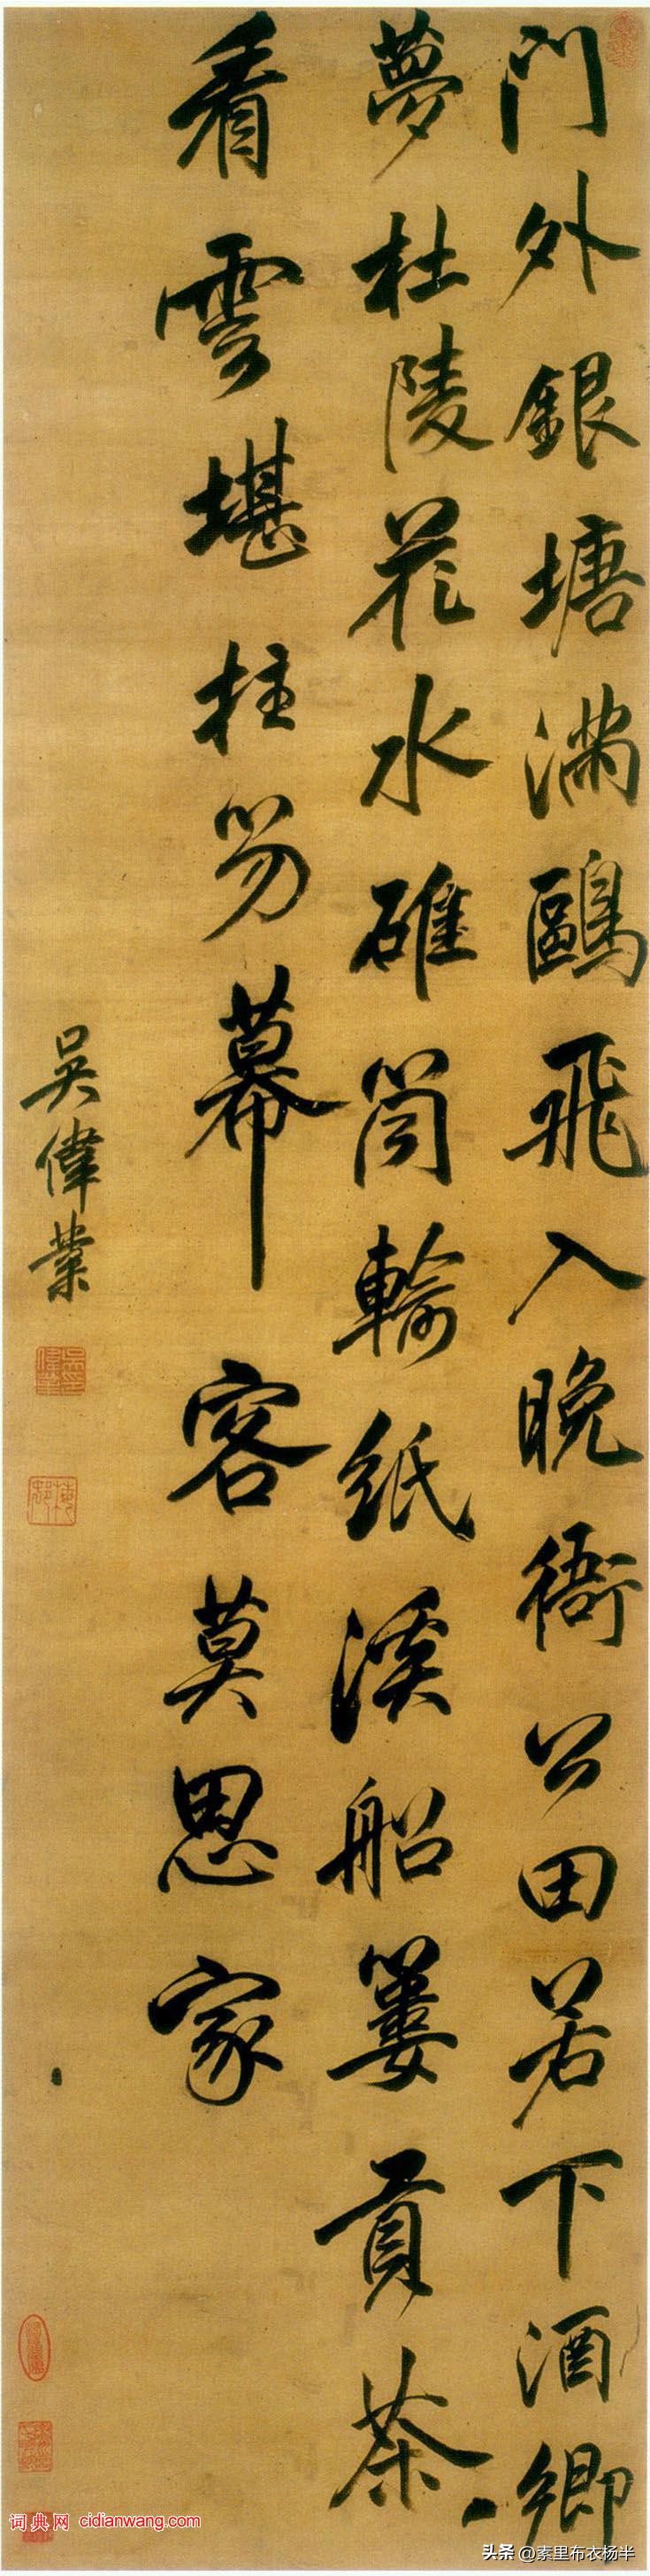 門外銀塘滿鷗飛入晚衙公田若下酒鄉
夢杜陵花水碓筒輸紙溪船簍貢茶
看雲堪拄笏幕客莫思家
吳偉業
词典网 cidianwang.com
头条 @素里布衣杨半